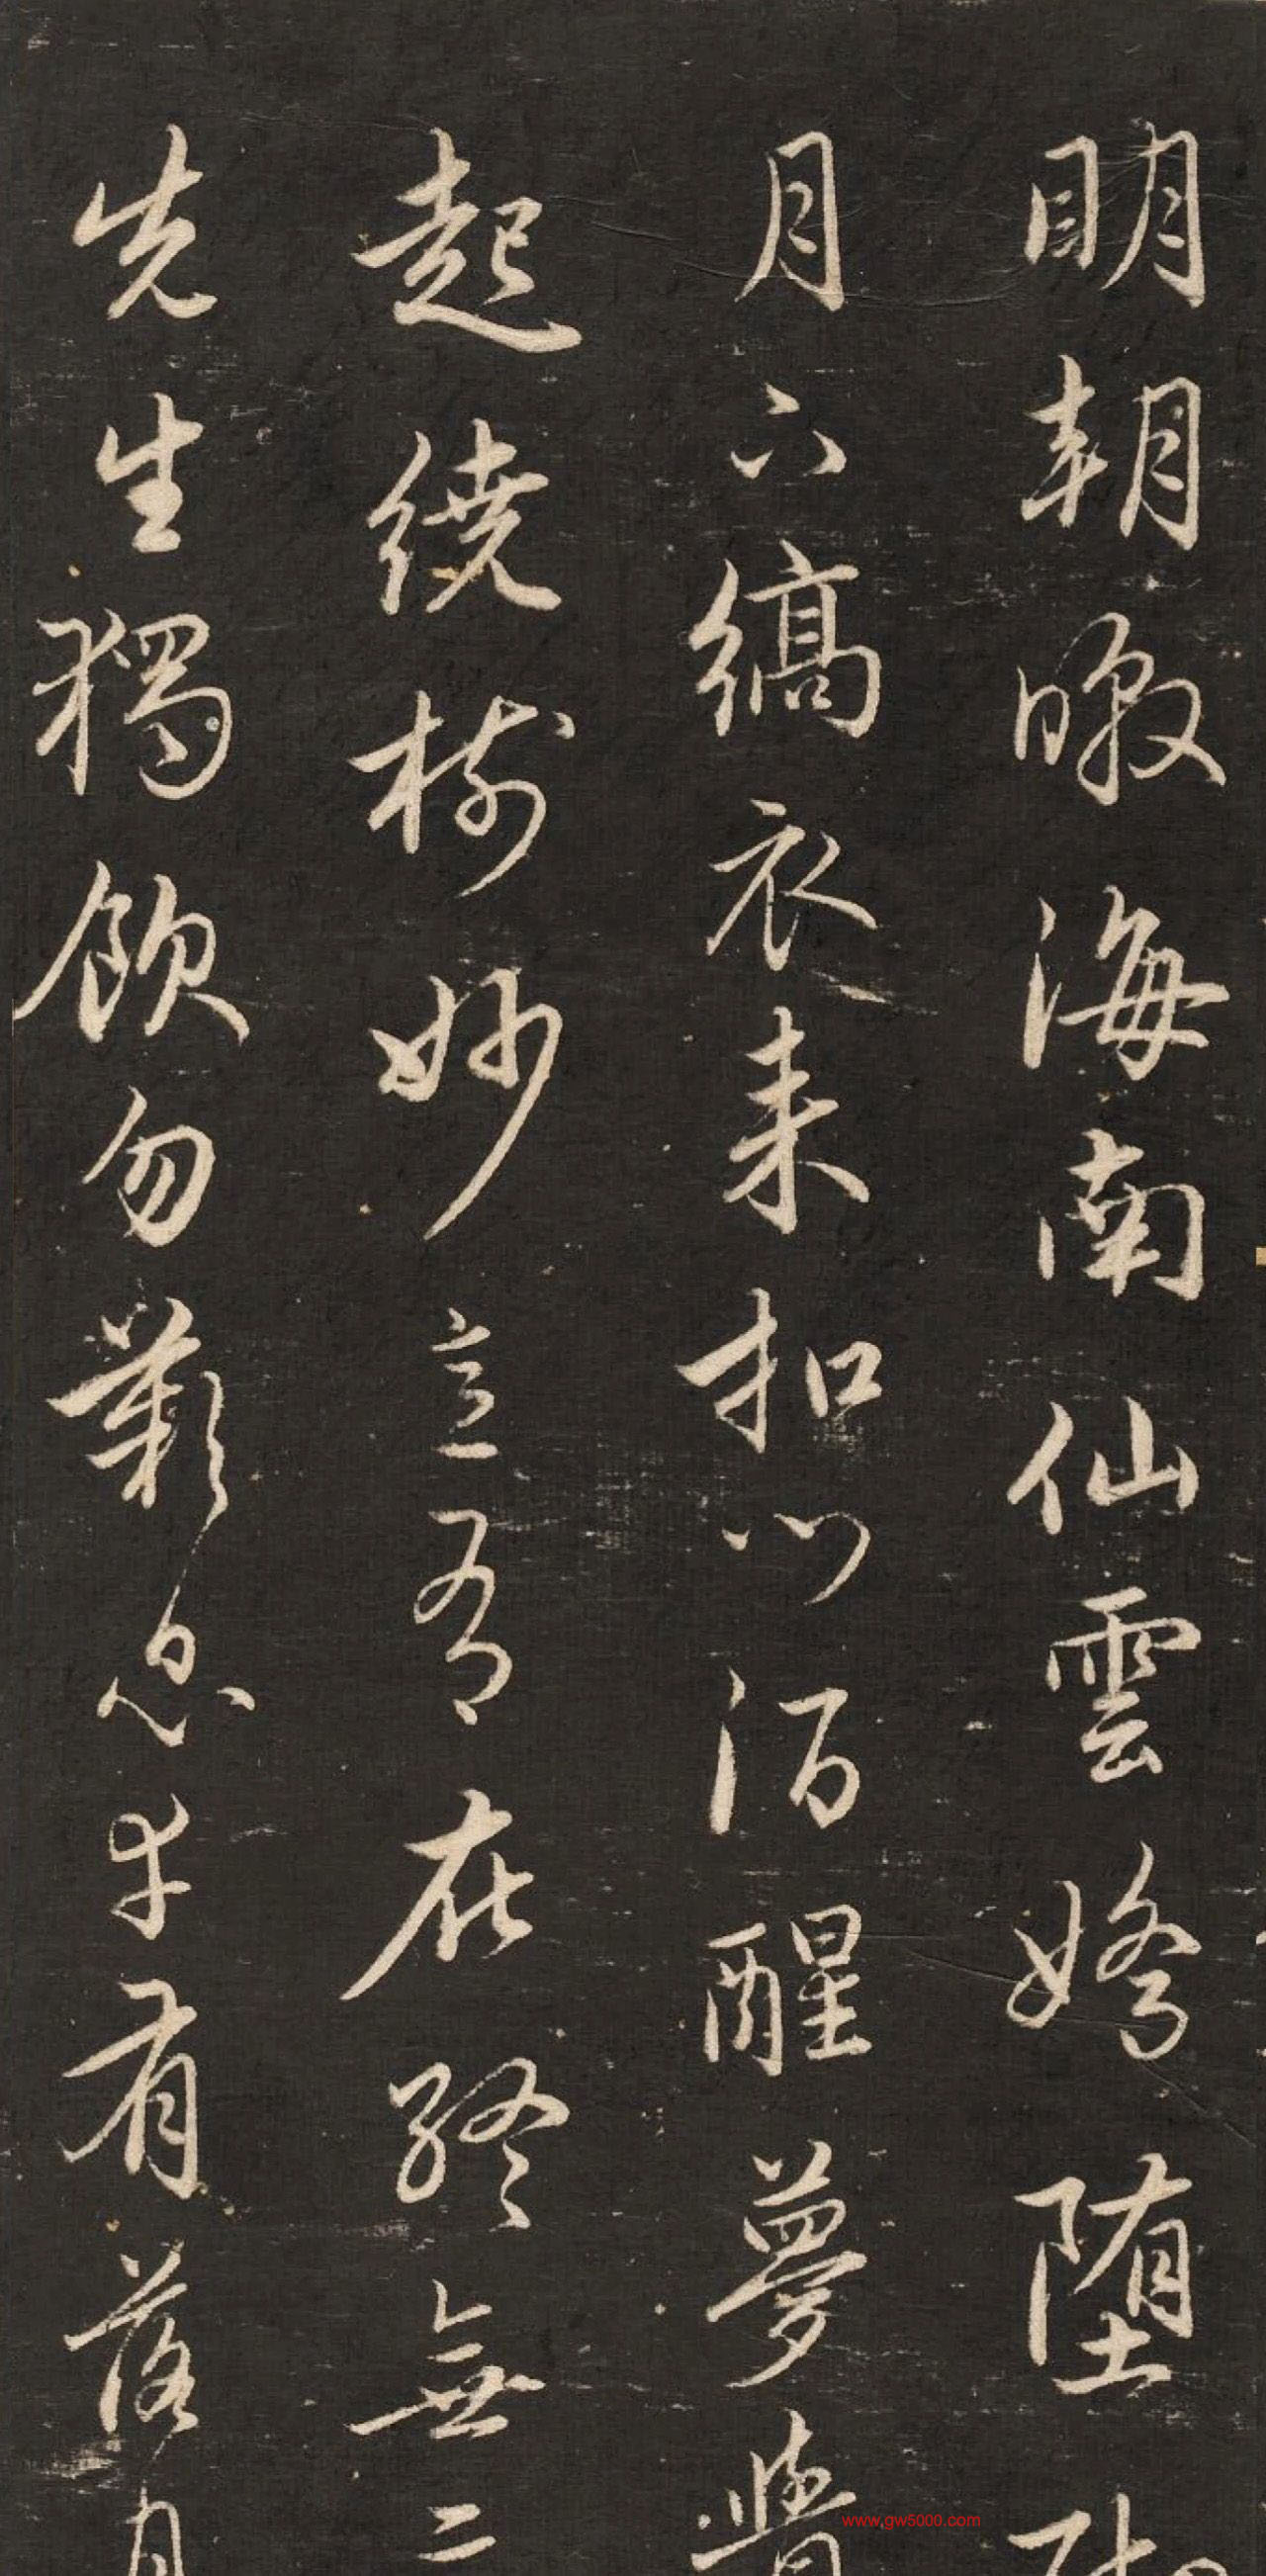 明朝暾海南仙雲嬌堕
月下縞衣来扣門酒醒夢覺
起繞樹妙意有在終無言
先生獨飲勿歎息幸有落月
www.gw5000.com